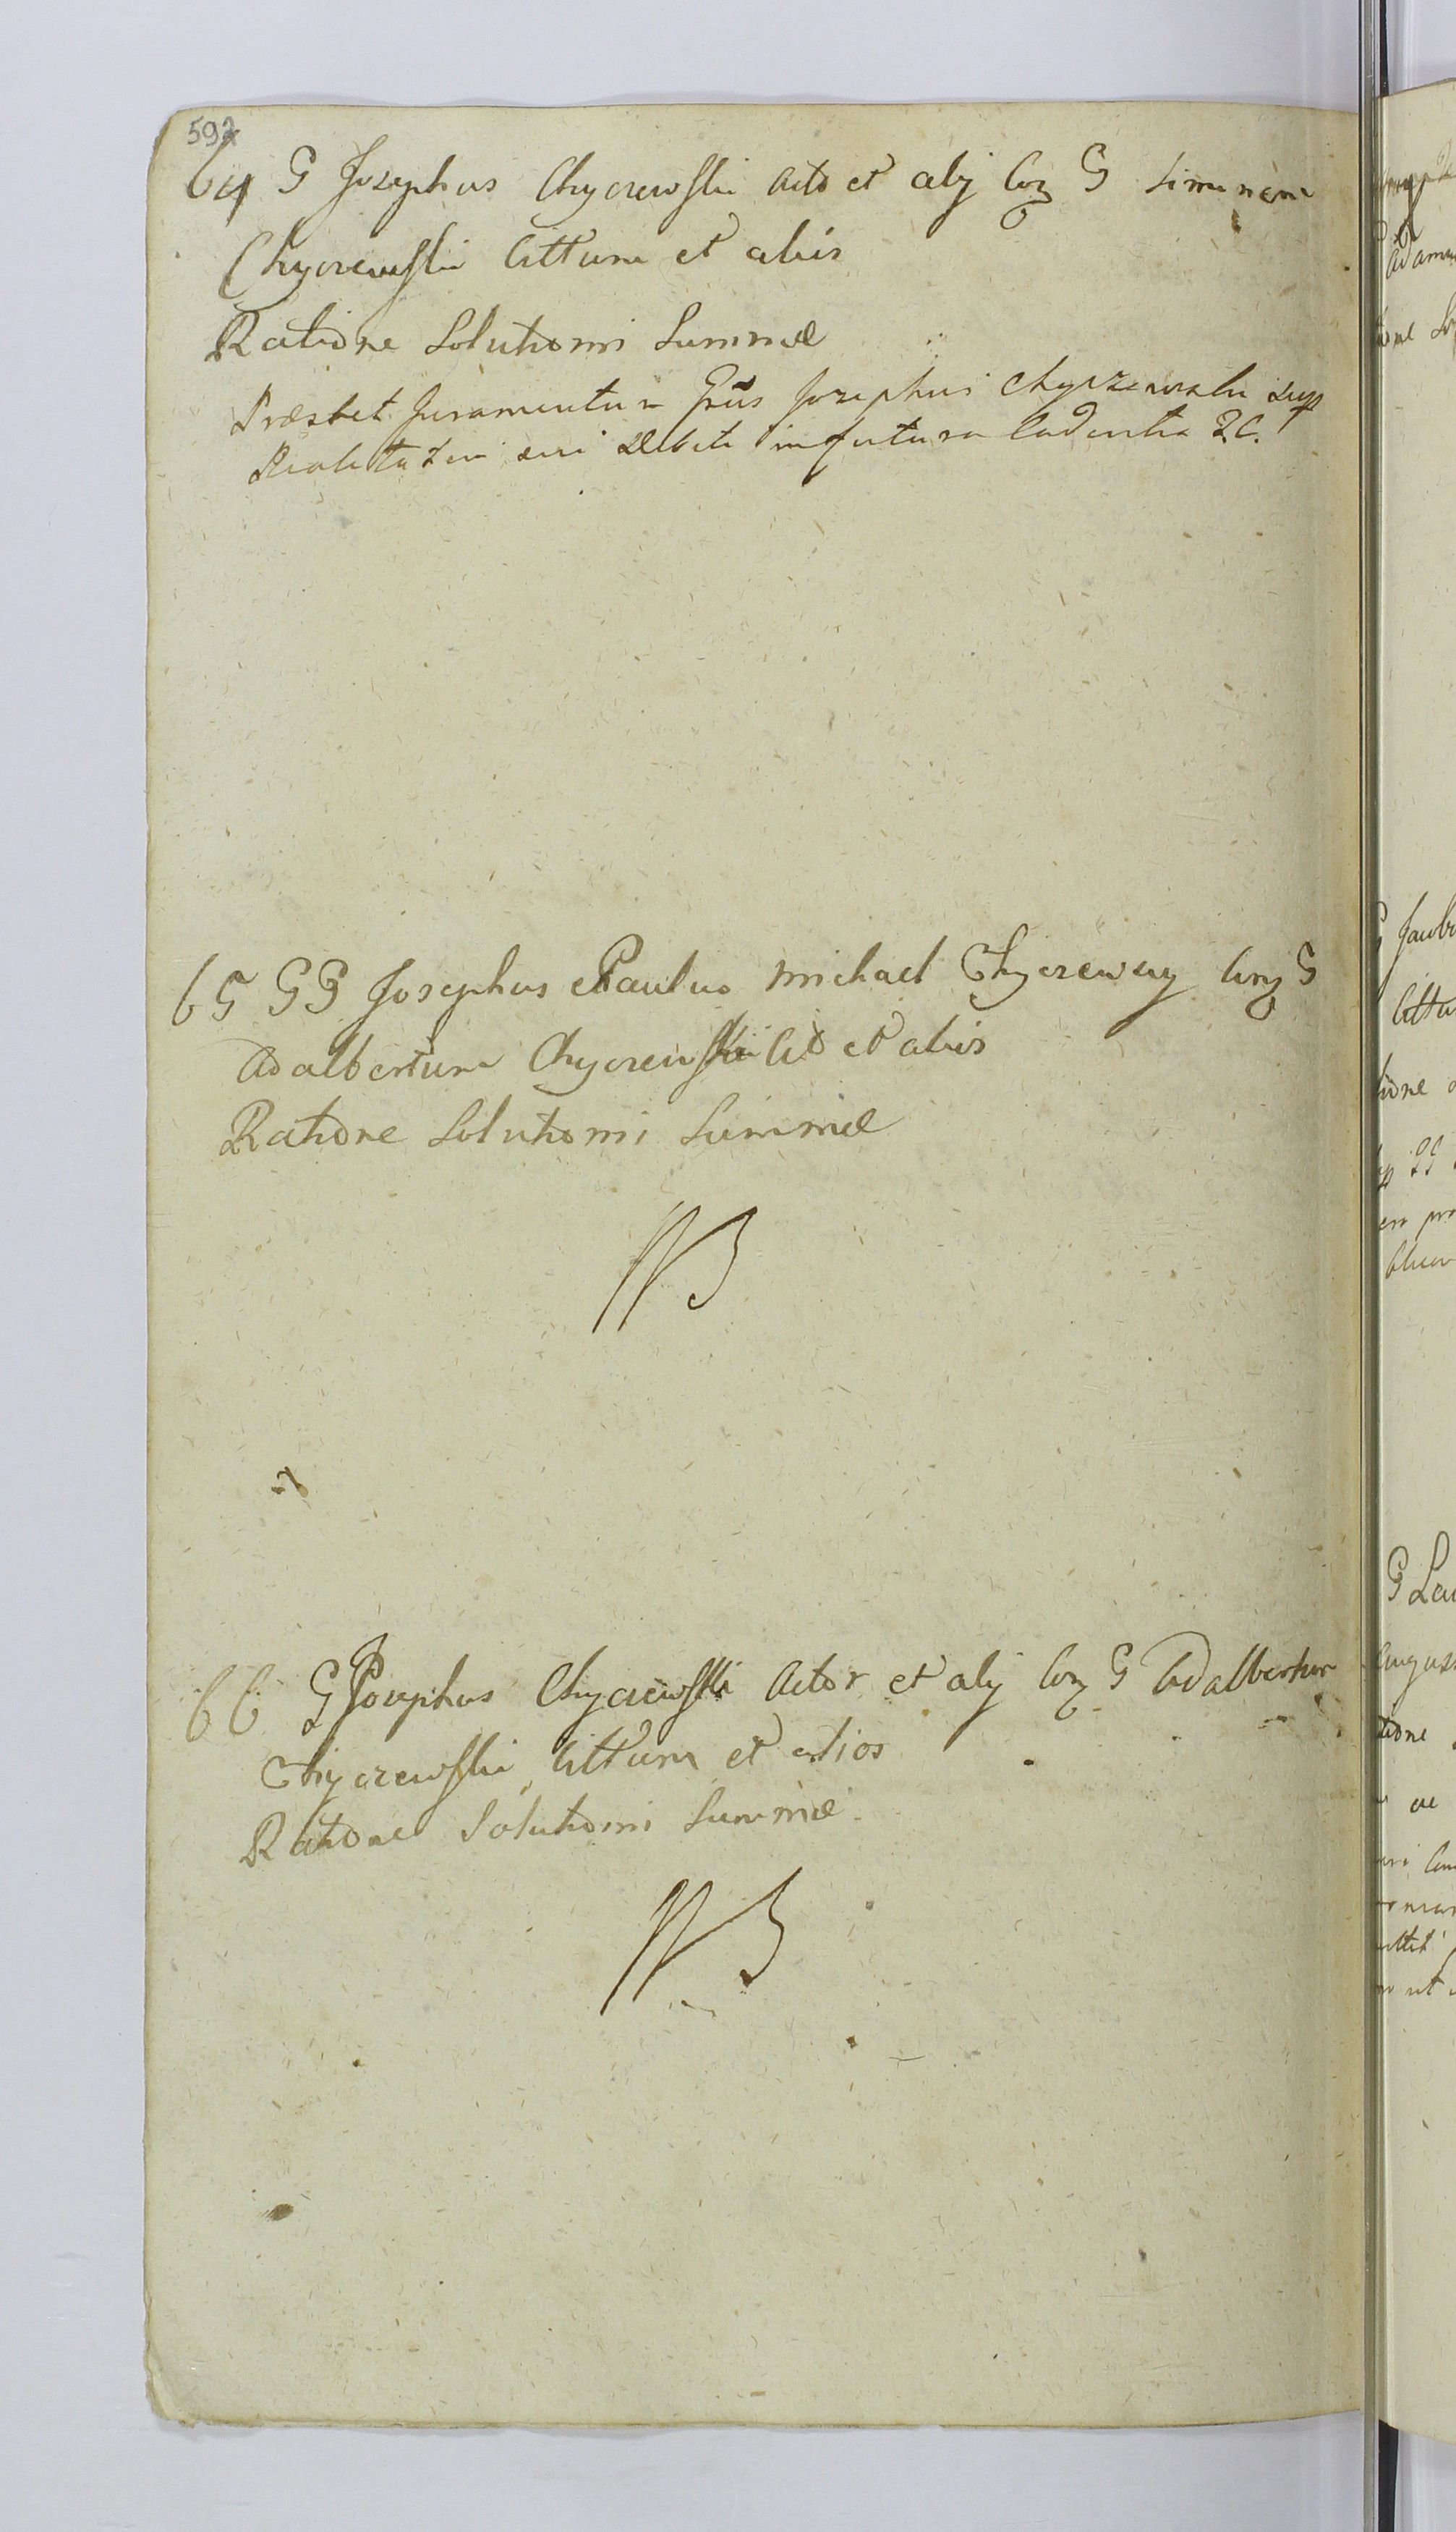 592
64 G Josephus Chyczewski Acto et alij Con G Simonem
Chyczewski Cittum et aliis
Ratione Solutionis Summæ
Præstet Juramentum Grūs Josephus Chyczewski sup
Realitatem sui Debiti in futura Cadentia 2C.
65 GG Josephus Paulus Michael Chyczewscy Con G
Adalbertum Chyczewski Cit et aliis
Ratione Solutionis Summæ
66 G Josephus Chyczewski Actor et alij Con G Adalbertum
Chyczewski Cittum et alios
Ratione Solutionis Summæ